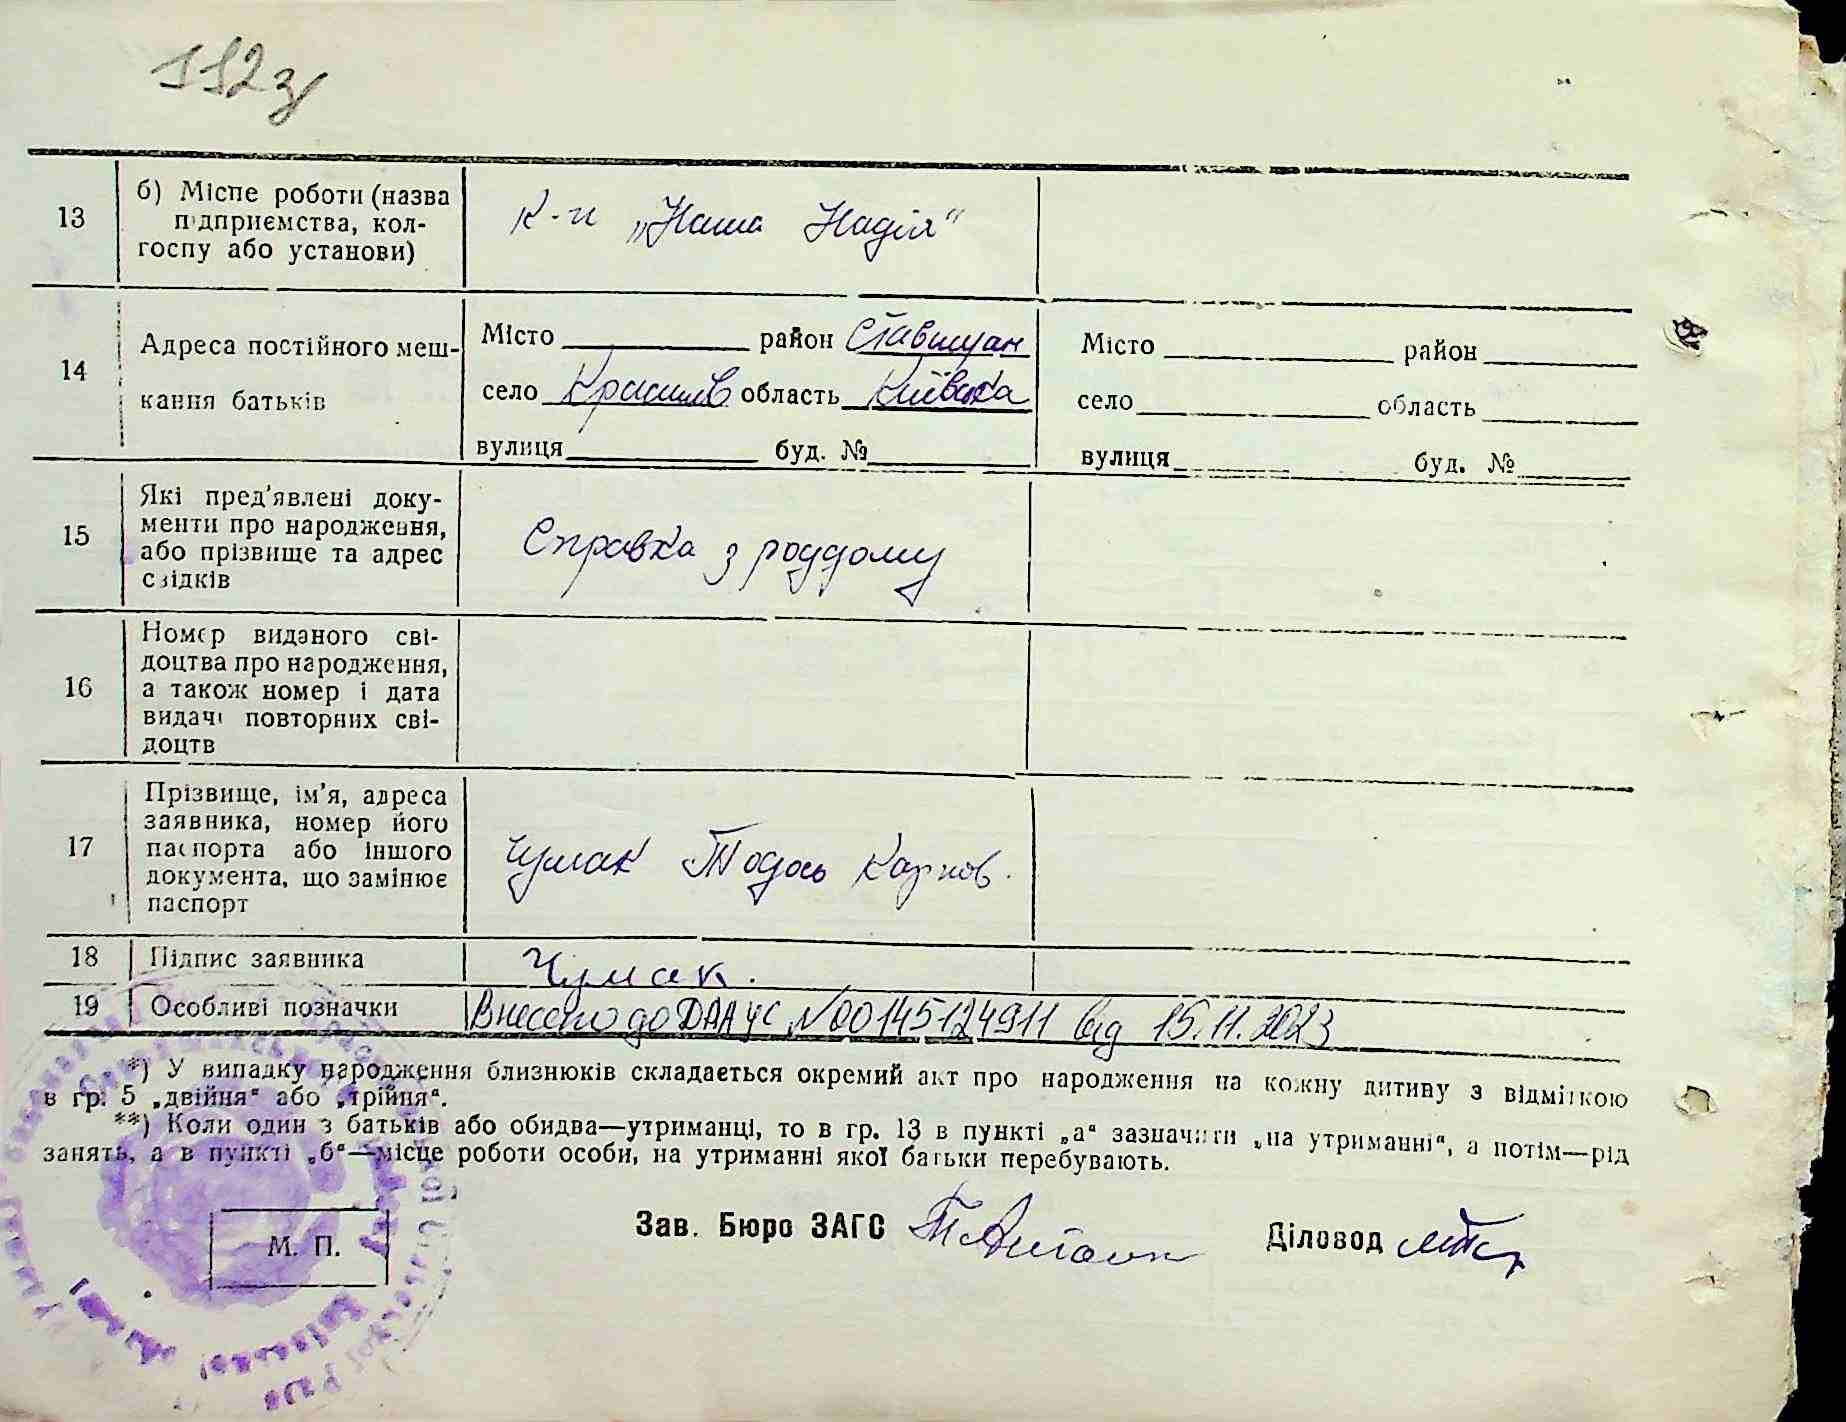 112зг
13
б) Місце роботи (назва
підприємства, кол-
госпу або установи)
к-п „Наша Надія"
14
Адреса постійного меш-
кання батьків
Місто район Ставищан
село Красилів область Київська
вулиця буд. №
Місто район
село область
вулиця буд. №
15
Які пред'явлені доку-
менти про народження,
або прізвище та адрес
свідків
Справка з роддому
16
Номер виданого сві-
доцтва про народження,
а також номер і дата
видачі повторних сві-
доцтв
17
Прізвище, ім'я, адреса
заявника, номер його
паспорта або іншого
документа, що замінює
паспорт
Чумак Тодось Карпов.
18
Підпис заявника
Чумак.
19
Особливі позначки
Внесено до ДРАЦС №00145124911 від 15.11.2023
*) У випадку народження близнюків складається окремий акт про народження на кожну дитину з відміткою
в гр. 5 „двійня" або „трійня".
**) Коли один з батьків або обидва—утриманці, то в гр. 13 в пункті „а" зазначити „на утриманні", а потім—рід
занять, а в пункті „б"—місце роботи особи, на утриманні якої батьки перебувають.
Зав. Бюро ЗАГС
Діловод
М. П.